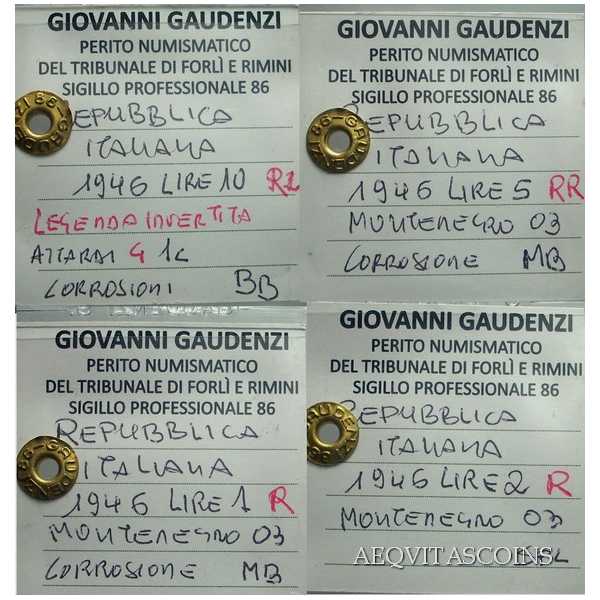 GIOVANNI GAUDENZI
PERITO NUMISMATICO
DEL TRIBUNALE DI FORLÌ E RIMINI
SIGILLO PROFESSIONALE 86
REPUBBLICA
ITALIANA
1946 LIRE 10 R2
LEGENDA INVERTITA
ATTARDI G 1c
CORROSIONI BB
GIOVANNI GAUDENZI
PERITO NUMISMATICO
DEL TRIBUNALE DI FORLÌ E RIMINI
SIGILLO PROFESSIONALE 86
REPUBBLICA
ITALIANA
1946 LIRE 5 RR
MONTENEGRO 03
CORROSIONE MB
GIOVANNI GAUDENZI
PERITO NUMISMATICO
DEL TRIBUNALE DI FORLÌ E RIMINI
SIGILLO PROFESSIONALE 86
REPUBBLICA
ITALIANA
1946 LIRE 1 R
MONTENEGRO 03
CORROSIONE MB
GIOVANNI GAUDENZI
PERITO NUMISMATICO
DEL TRIBUNALE DI FORLÌ E RIMINI
SIGILLO PROFESSIONALE 86
REPUBBLICA
ITALIANA
1946 LIRE 2 R
MONTENEGRO 03
AEQVITASCOINS